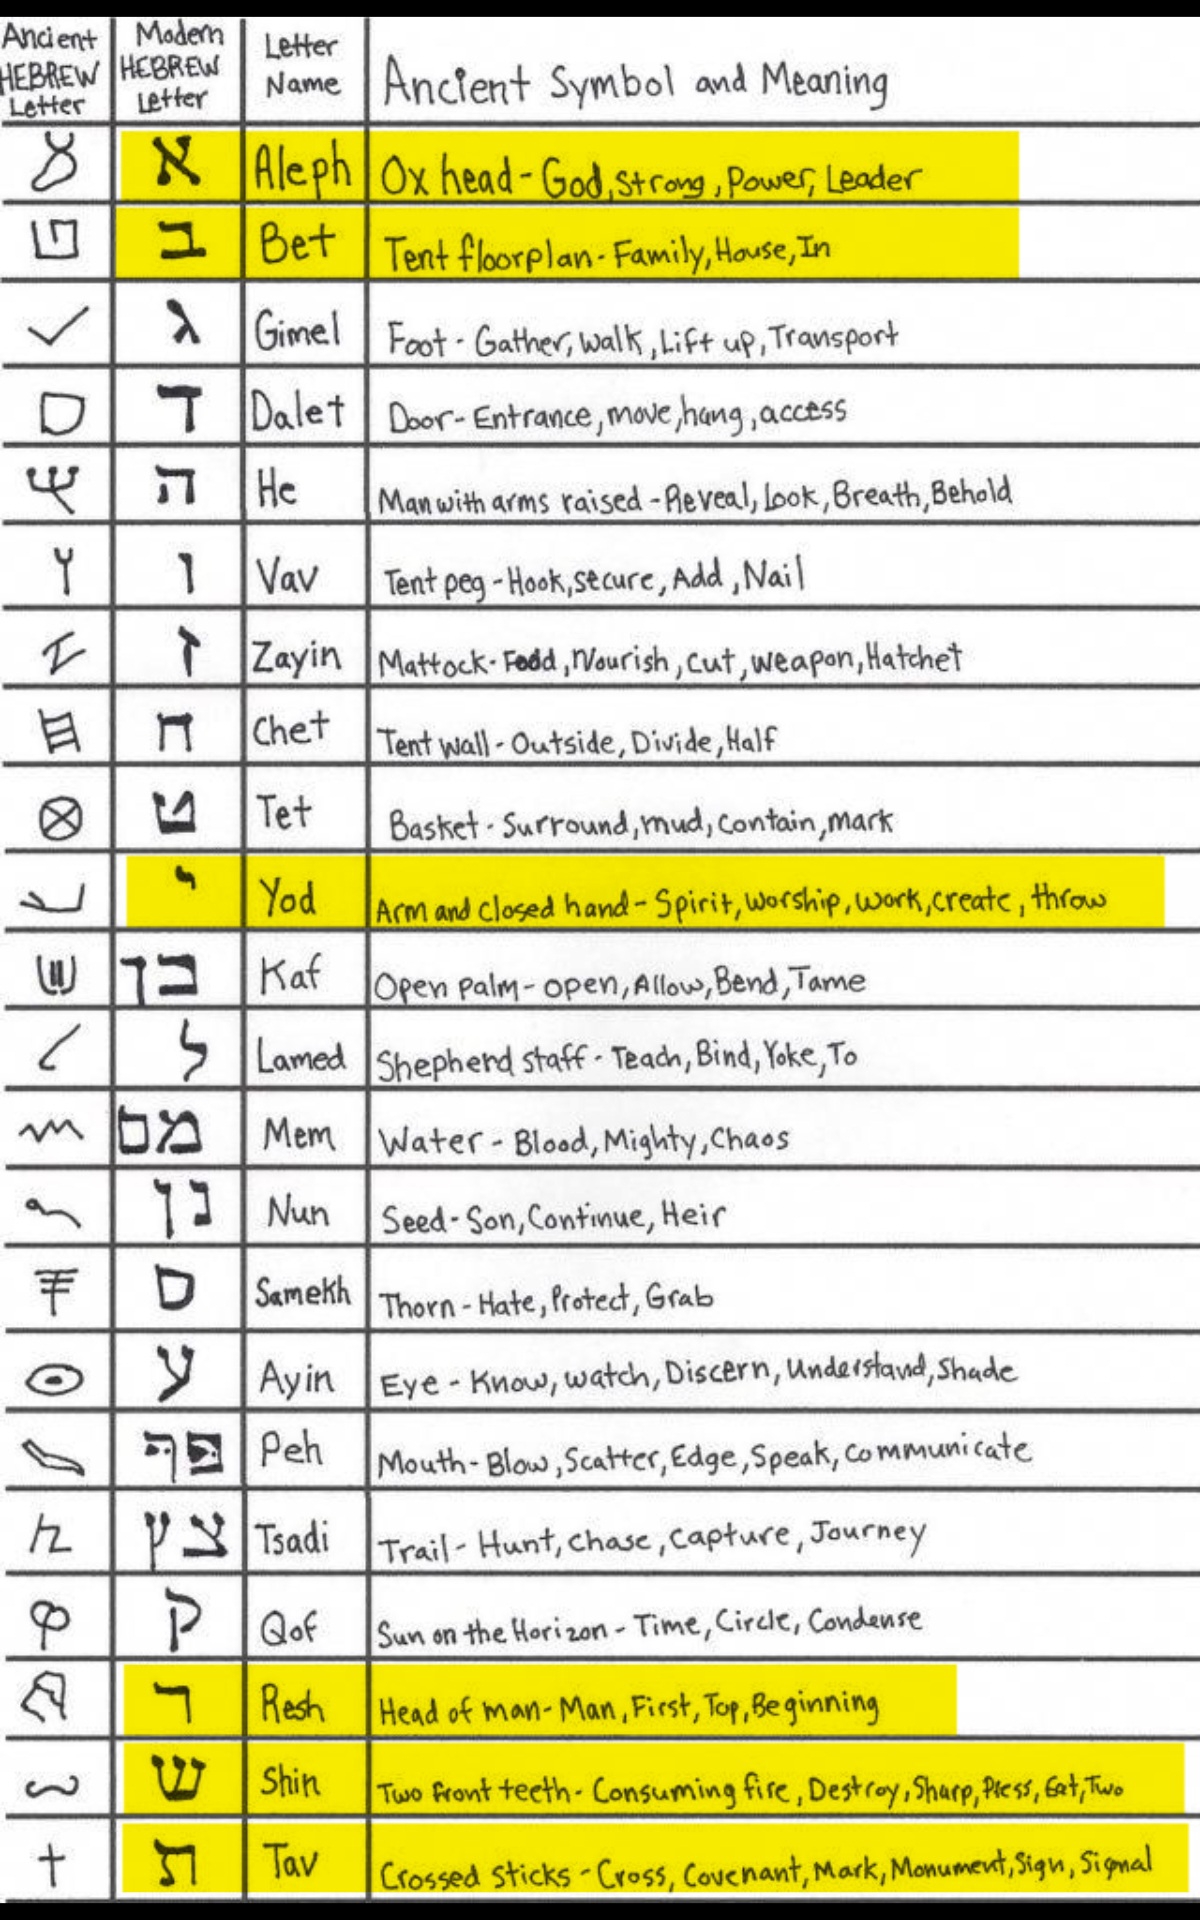 Ancient HEBREW Letter | Modern HEBREW Letter | Letter Name | Ancient Symbol and Meaning
א Aleph Ox head - God, Strong, Power, Leader
ב Bet Tent floorplan - Family, House, In
ג Gimel Foot - Gather, Walk, Lift up, Transport
ד Dalet Door - Entrance, move, hang, access
ה He Man with arms raised - Reveal, Look, Breath, Behold
ו Vav Tent peg - Hook, secure, Add, Nail
ז Zayin Mattock - Food, Nourish, cut, weapon, Hatchet
ח Chet Tent wall - Outside, Divide, Half
ט Tet Basket - Surround, mud, contain, mark
י Yod Arm and closed hand - Spirit, Worship, work, create, throw
כ ך Kaf Open palm - open, Allow, Bend, Tame
ל Lamed Shepherd staff - Teach, Bind, Yoke, To
מ ם Mem Water - Blood, Mighty, Chaos
נ ן Nun Seed - Son, Continue, Heir
ס Samekh Thorn - Hate, Protect, Grab
ע Ayin Eye - Know, watch, Discern, Understand, Shade
פ ף Peh Mouth - Blow, Scatter, Edge, Speak, communicate
צ ץ Tsadi Trail - Hunt, chase, capture, Journey
ק Qof Sun on the Horizon - Time, Circle, Condense
ר Resh Head of man - Man, First, Top, Beginning
ש Shin Two front teeth - Consuming fire, Destroy, Sharp, Press, Eat, Two
ת Tav Crossed sticks - Cross, Covenant, Mark, Monument, Sign, Signal